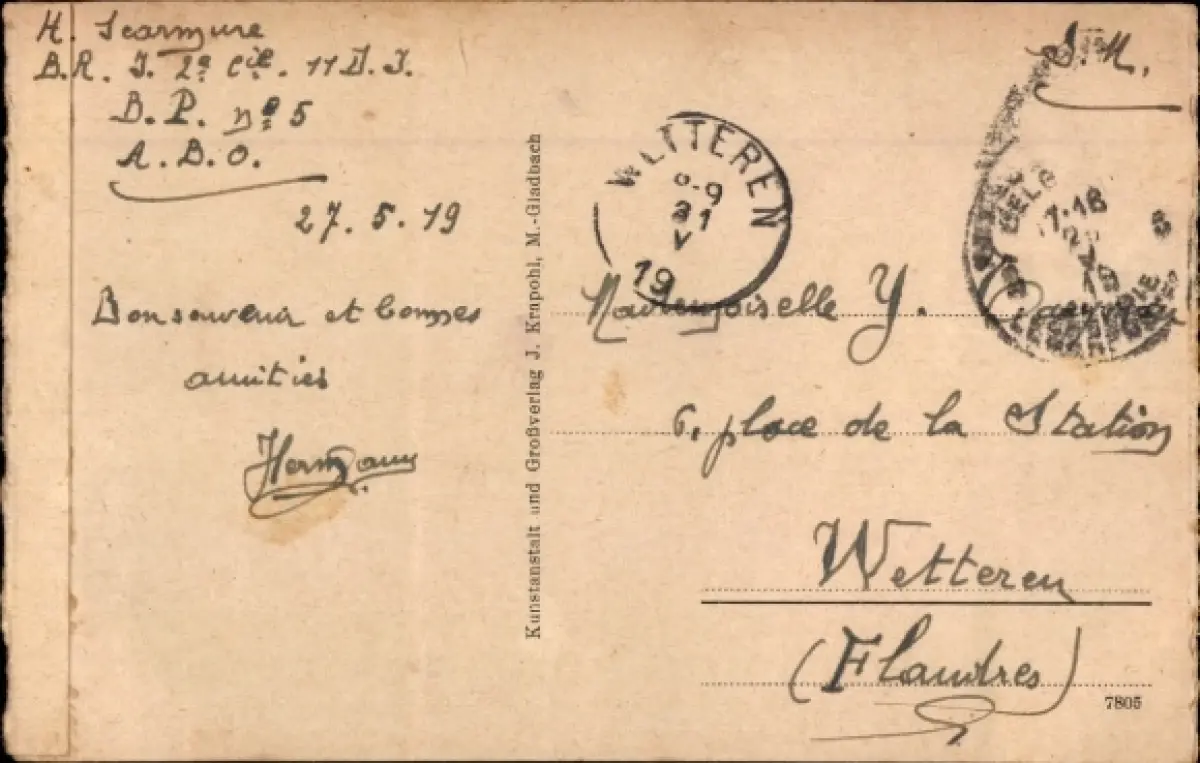 H. Scarmure
B.R. I. 2e Cie. 11 D.I.
B.P. nº 5
A.B.O.
27.5.19
Bon souvenir et bonnes
amitiés
Hermann
Kunstanstalt und Großverlag J. Krapohl, M.-Gladbach
S.M.
WETTEREN
8-9
31
V
19
17-18
19
Mademoiselle Y.
6, place de la Station
Wetteren
(Flandres)
7805